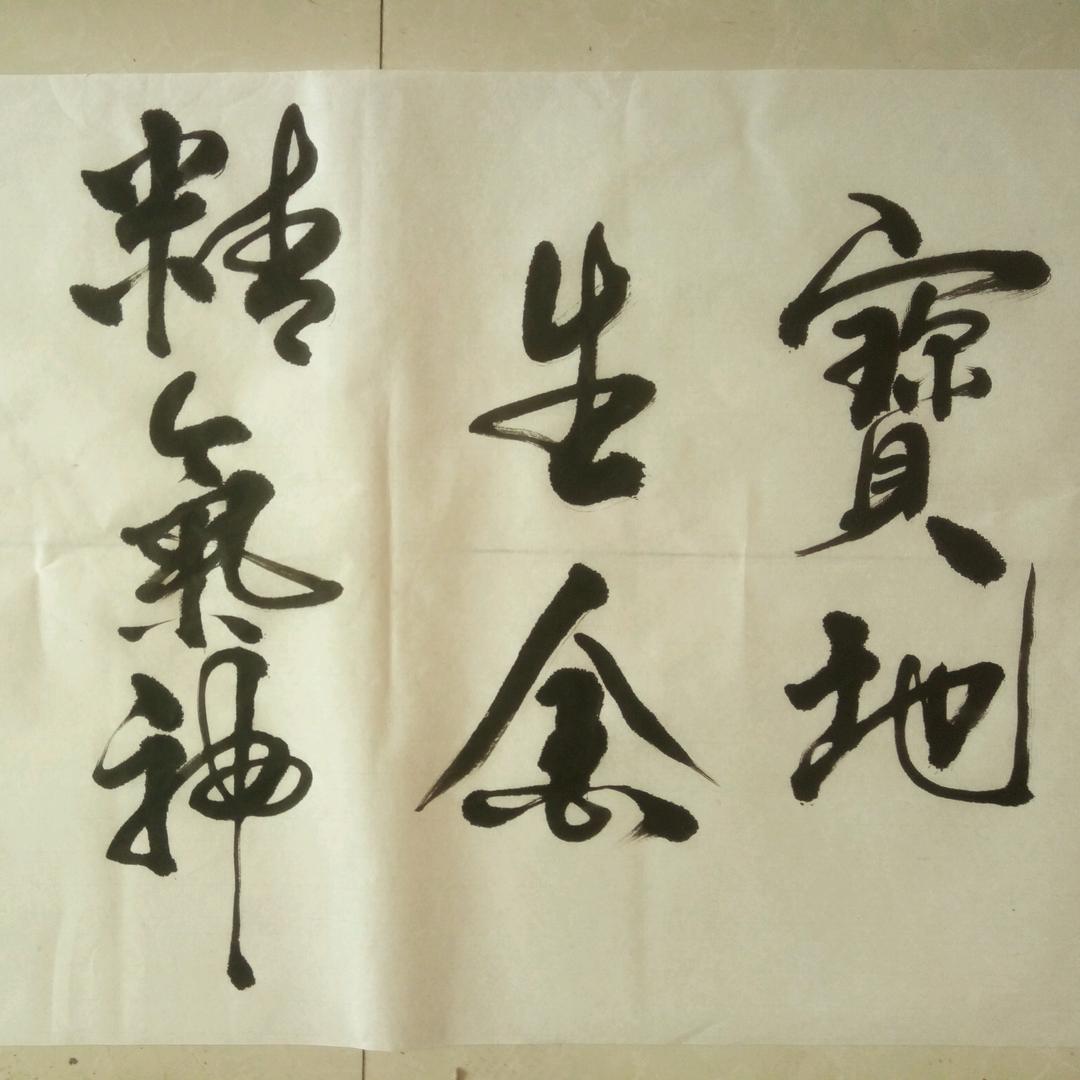 寶地
生金
精氣神